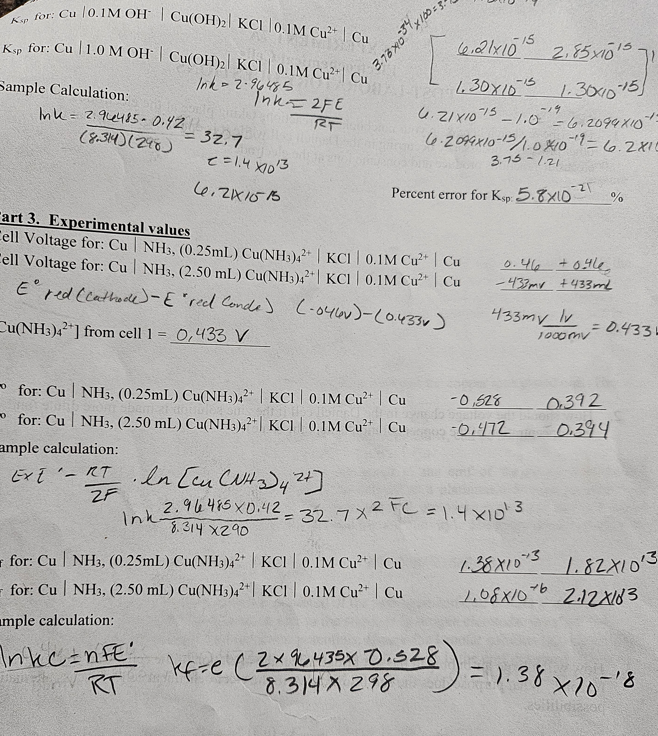 Ksp for: Cu | 0.1M OH⁻ | Cu(OH)₂ | KCl | 0.1M Cu²⁺ | Cu
Ksp for: Cu | 1.0 M OH⁻ | Cu(OH)₂ | KCl | 0.1M Cu²⁺ | Cu
6.21x10⁻¹⁵ 2.85x10⁻¹⁵
1.30x10⁻¹⁵ 1.30x10⁻¹⁵
Sample Calculation:
lnk = 2.96485
lnk = 2FE / RT
lnk = 2.96485 · 0.42 / (8.314)(298) = 32.7
= 1.4 x10¹³
6.21x10⁻¹⁵
6.21x10⁻¹⁵ - 1.0⁻¹⁹ = 6.2099x10
6.2099x10⁻¹⁵/1.0x10⁻¹⁹ = 6.2x1
Percent error for Ksp: 5.8x10⁻²¹ %
art 3. Experimental values
ell Voltage for: Cu | NH₃, (0.25mL) Cu(NH₃)₄²⁺ | KCl | 0.1M Cu²⁺ | Cu 0.46 + 0.46
ell Voltage for: Cu | NH₃, (2.50 mL) Cu(NH₃)₄²⁺ | KCl | 0.1M Cu²⁺ | Cu -433mv +433mv
E° red (cathode) - E° red (anode) (-.046v) - (0.433v)
433mv 1v / 1000mv = 0.433
Cu(NH₃)₄²⁺] from cell 1 = 0,433 V
for: Cu | NH₃, (0.25mL) Cu(NH₃)₄²⁺ | KCl | 0.1M Cu²⁺ | Cu -0,528 0.392
for: Cu | NH₃, (2.50 mL) Cu(NH₃)₄²⁺ | KCl | 0.1M Cu²⁺ | Cu -0,472 0.394
ample calculation:
- RT / 2F · ln [Cu(NH3)4²⁺]
lnk 2.96485 x 0.42 / 8.314 x 290 = 32.7 x 2 FC = 1.4 x10¹³
for: Cu | NH₃, (0.25mL) Cu(NH₃)₄²⁺ | KCl | 0.1M Cu²⁺ | Cu 1.38x10⁻¹³ 1.82x10¹³
for: Cu | NH₃, (2.50 mL) Cu(NH₃)₄²⁺ | KCl | 0.1M Cu²⁺ | Cu 1.08x10⁻¹⁶ 2.12x10¹³
mple calculation:
lnkc = nFE° / RT kf = e (2 x 96435 x 0.528 / 8.314 x 298) = 1.38 x10⁻¹⁸